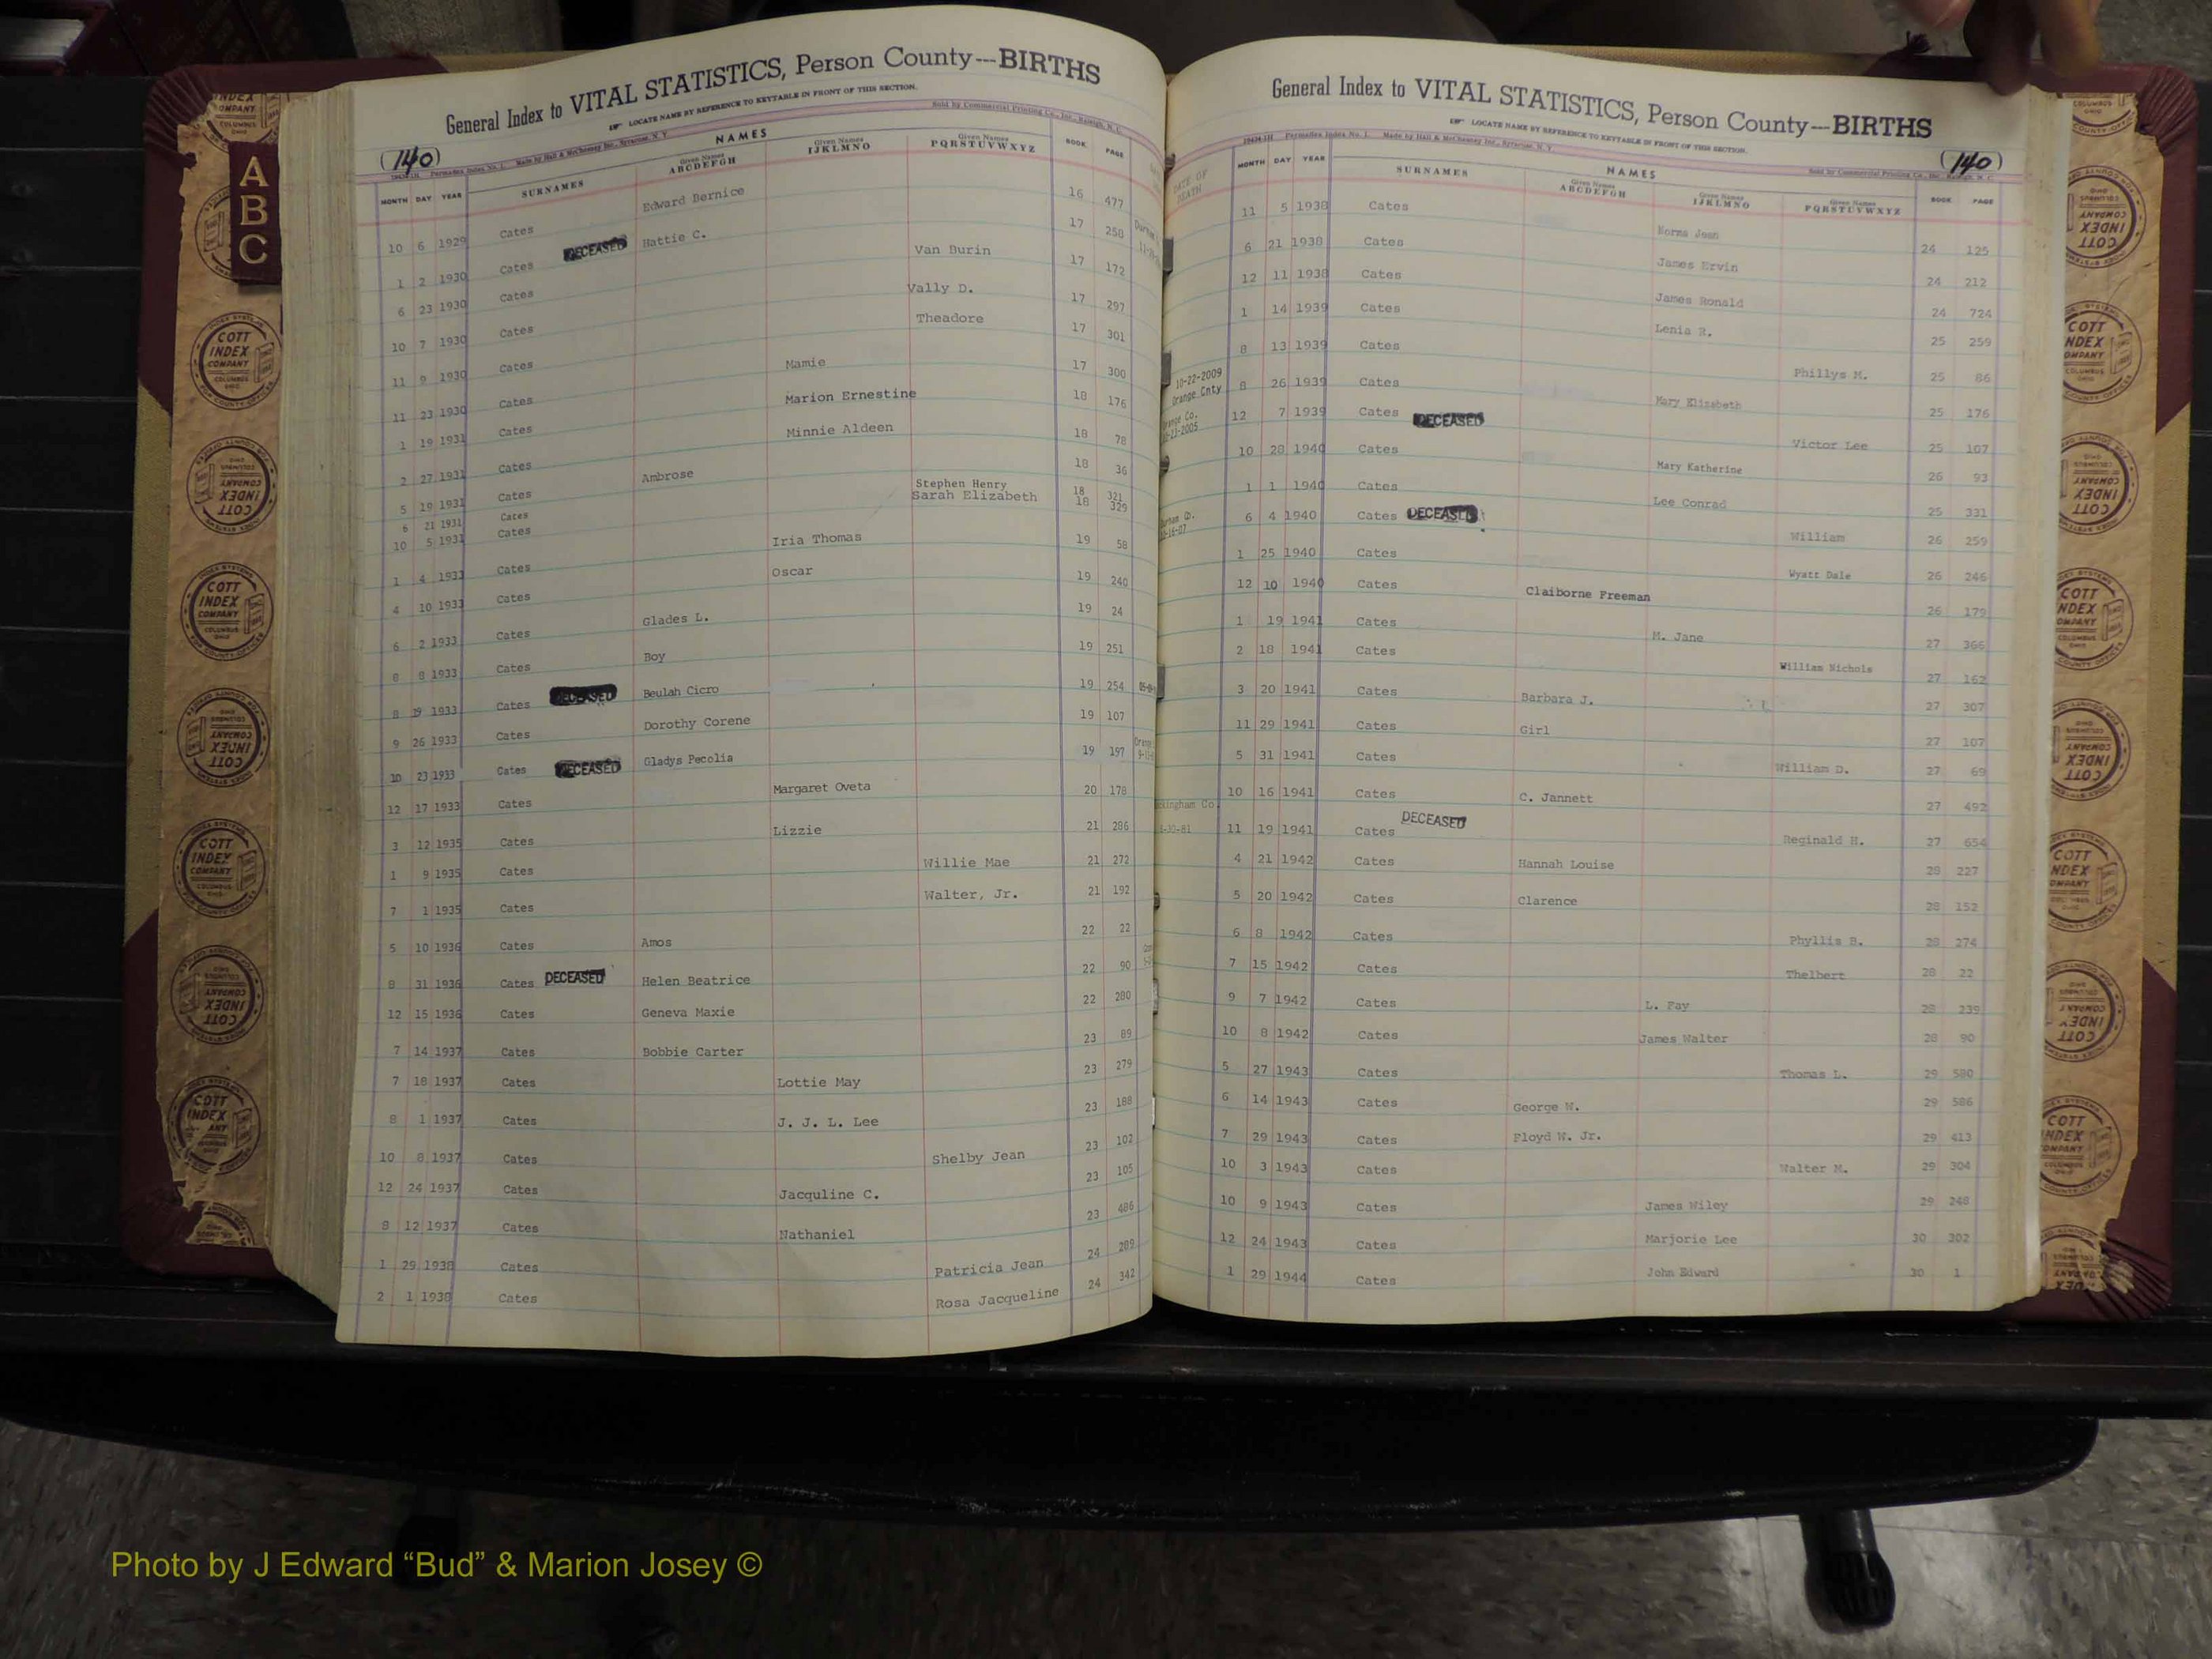 A
B
C
General Index to VITAL STATISTICS, Person County---BIRTHS
LOCATE NAME BY REFERENCE TO KEYTABLE IN FRONT OF THIS SECTION.
Sold by Commercial Printing Co., Inc., Raleigh, N. C.
(140)
NAMES
MONTH DAY YEAR SURNAMES Given Names ABCDEFGH Given Names IJKLMNO Given Names PQRSTUVWXYZ BOOK PAGE
10 6 1929 Cates Edward Bernice 16 477
1 2 1930 Cates DECEASED Hattie C. 17 250
6 23 1930 Cates Van Burin 17 172
10 7 1930 Cates Vally D. 17 297
11 9 1930 Cates Theadore 17 301
11 23 1930 Cates Mamie 17 300
1 19 1931 Cates Marion Ernestine 18 176
2 27 1931 Cates Minnie Aldeen 18 78
5 19 1931 Cates Ambrose 18 36
6 21 1931 Cates Stephen Henry 18 321
10 5 1931 Cates Sarah Elizabeth 18 329
1 4 1933 Cates Iria Thomas 19 58
4 10 1933 Cates Oscar 19 240
6 2 1933 Cates Glades L. 19 24
8 8 1933 Cates Boy 19 251
8 19 1933 Cates DECEASED Beulah Cicro 19 254
9 26 1933 Cates Dorothy Corene 19 107
10 23 1933 Cates DECEASED Gladys Pecolia 19 197
12 17 1933 Cates Margaret Oveta 20 178
3 12 1935 Cates Lizzie 21 286
1 9 1935 Cates Willie Mae 21 272
7 1 1935 Cates Walter, Jr. 21 192
5 10 1936 Cates Amos 22 22
8 31 1936 Cates DECEASED Helen Beatrice 22 90
12 15 1936 Cates Geneva Maxie 22 280
7 14 1937 Cates Bobbie Carter 23 89
7 18 1937 Cates Lottie May 23 279
8 1 1937 Cates J. J. L. Lee 23 188
10 8 1937 Cates Shelby Jean 23 102
12 24 1937 Cates Jacquline C. 23 105
8 12 1937 Cates Nathaniel 23 486
1 29 1938 Cates Patricia Jean 24 209
2 1 1938 Cates Rosa Jacqueline 24 342
General Index to VITAL STATISTICS, Person County---BIRTHS
LOCATE NAME BY REFERENCE TO KEYTABLE IN FRONT OF THIS SECTION.
Made by Hall & McChesney Inc., Syracuse, N. Y.
(140)
DATE OF DEATH
NAMES
MONTH DAY YEAR SURNAMES Given Names ABCDEFGH Given Names IJKLMNO Given Names PQRSTUVWXYZ BOOK PAGE
11 5 1938 Cates Norma Jean 24 125
6 21 1938 Cates James Ervin 24 212
12 11 1938 Cates James Ronald 24 724
1 14 1939 Cates Lenia R. 25 259
8 13 1939 Cates Phillys M. 25 86
10-22-2009 Orange Cnty 8 26 1939 Cates Mary Elizabeth 25 176
12 7 1939 Cates DECEASED Victor Lee 25 107
10 28 1940 Cates Mary Katherine 26 93
1 1 1940 Cates Lee Conrad 25 331
6 4 1940 Cates DECEASED William 26 259
1 25 1940 Cates Wyatt Dale 26 246
12 10 1940 Cates Claiborne Freeman 26 179
1 19 1941 Cates M. Jane 27 366
2 18 1941 Cates William Nichols 27 162
3 20 1941 Cates Barbara J. 27 307
11 29 1941 Cates Girl 27 107
5 31 1941 Cates William D. 27 69
10 16 1941 Cates C. Jannett 27 492
11 19 1941 Cates DECEASED Reginald H. 27 654
4 21 1942 Cates Hannah Louise 28 227
5 20 1942 Cates Clarence 28 152
6 8 1942 Cates Phyllis B. 28 274
7 15 1942 Cates Thelbert 28 22
9 7 1942 Cates L. Fay 28 239
10 8 1942 Cates James Walter 28 90
5 27 1943 Cates Thomas L. 29 580
6 14 1943 Cates George W. 29 586
7 29 1943 Cates Floyd W. Jr. 29 413
10 3 1943 Cates Walter M. 29 304
10 9 1943 Cates James Wiley 29 248
12 24 1943 Cates Marjorie Lee 30 302
1 29 1944 Cates John Edward 30 1
COTT INDEX COMPANY
COLUMBUS OHIO
Photo by J Edward “Bud” & Marion Josey ©